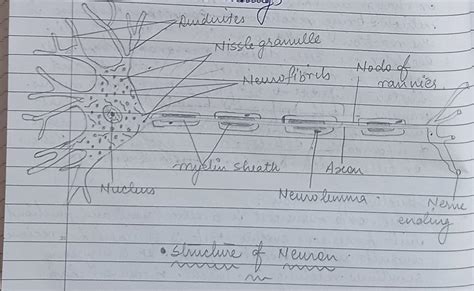 Dendrites
Nissle granulle
Neurofibrils
Node of
rannies
Myelin Sheath
Axon
Nucleus
Neurolemma
Nerve
ending
• Structure of Neuron